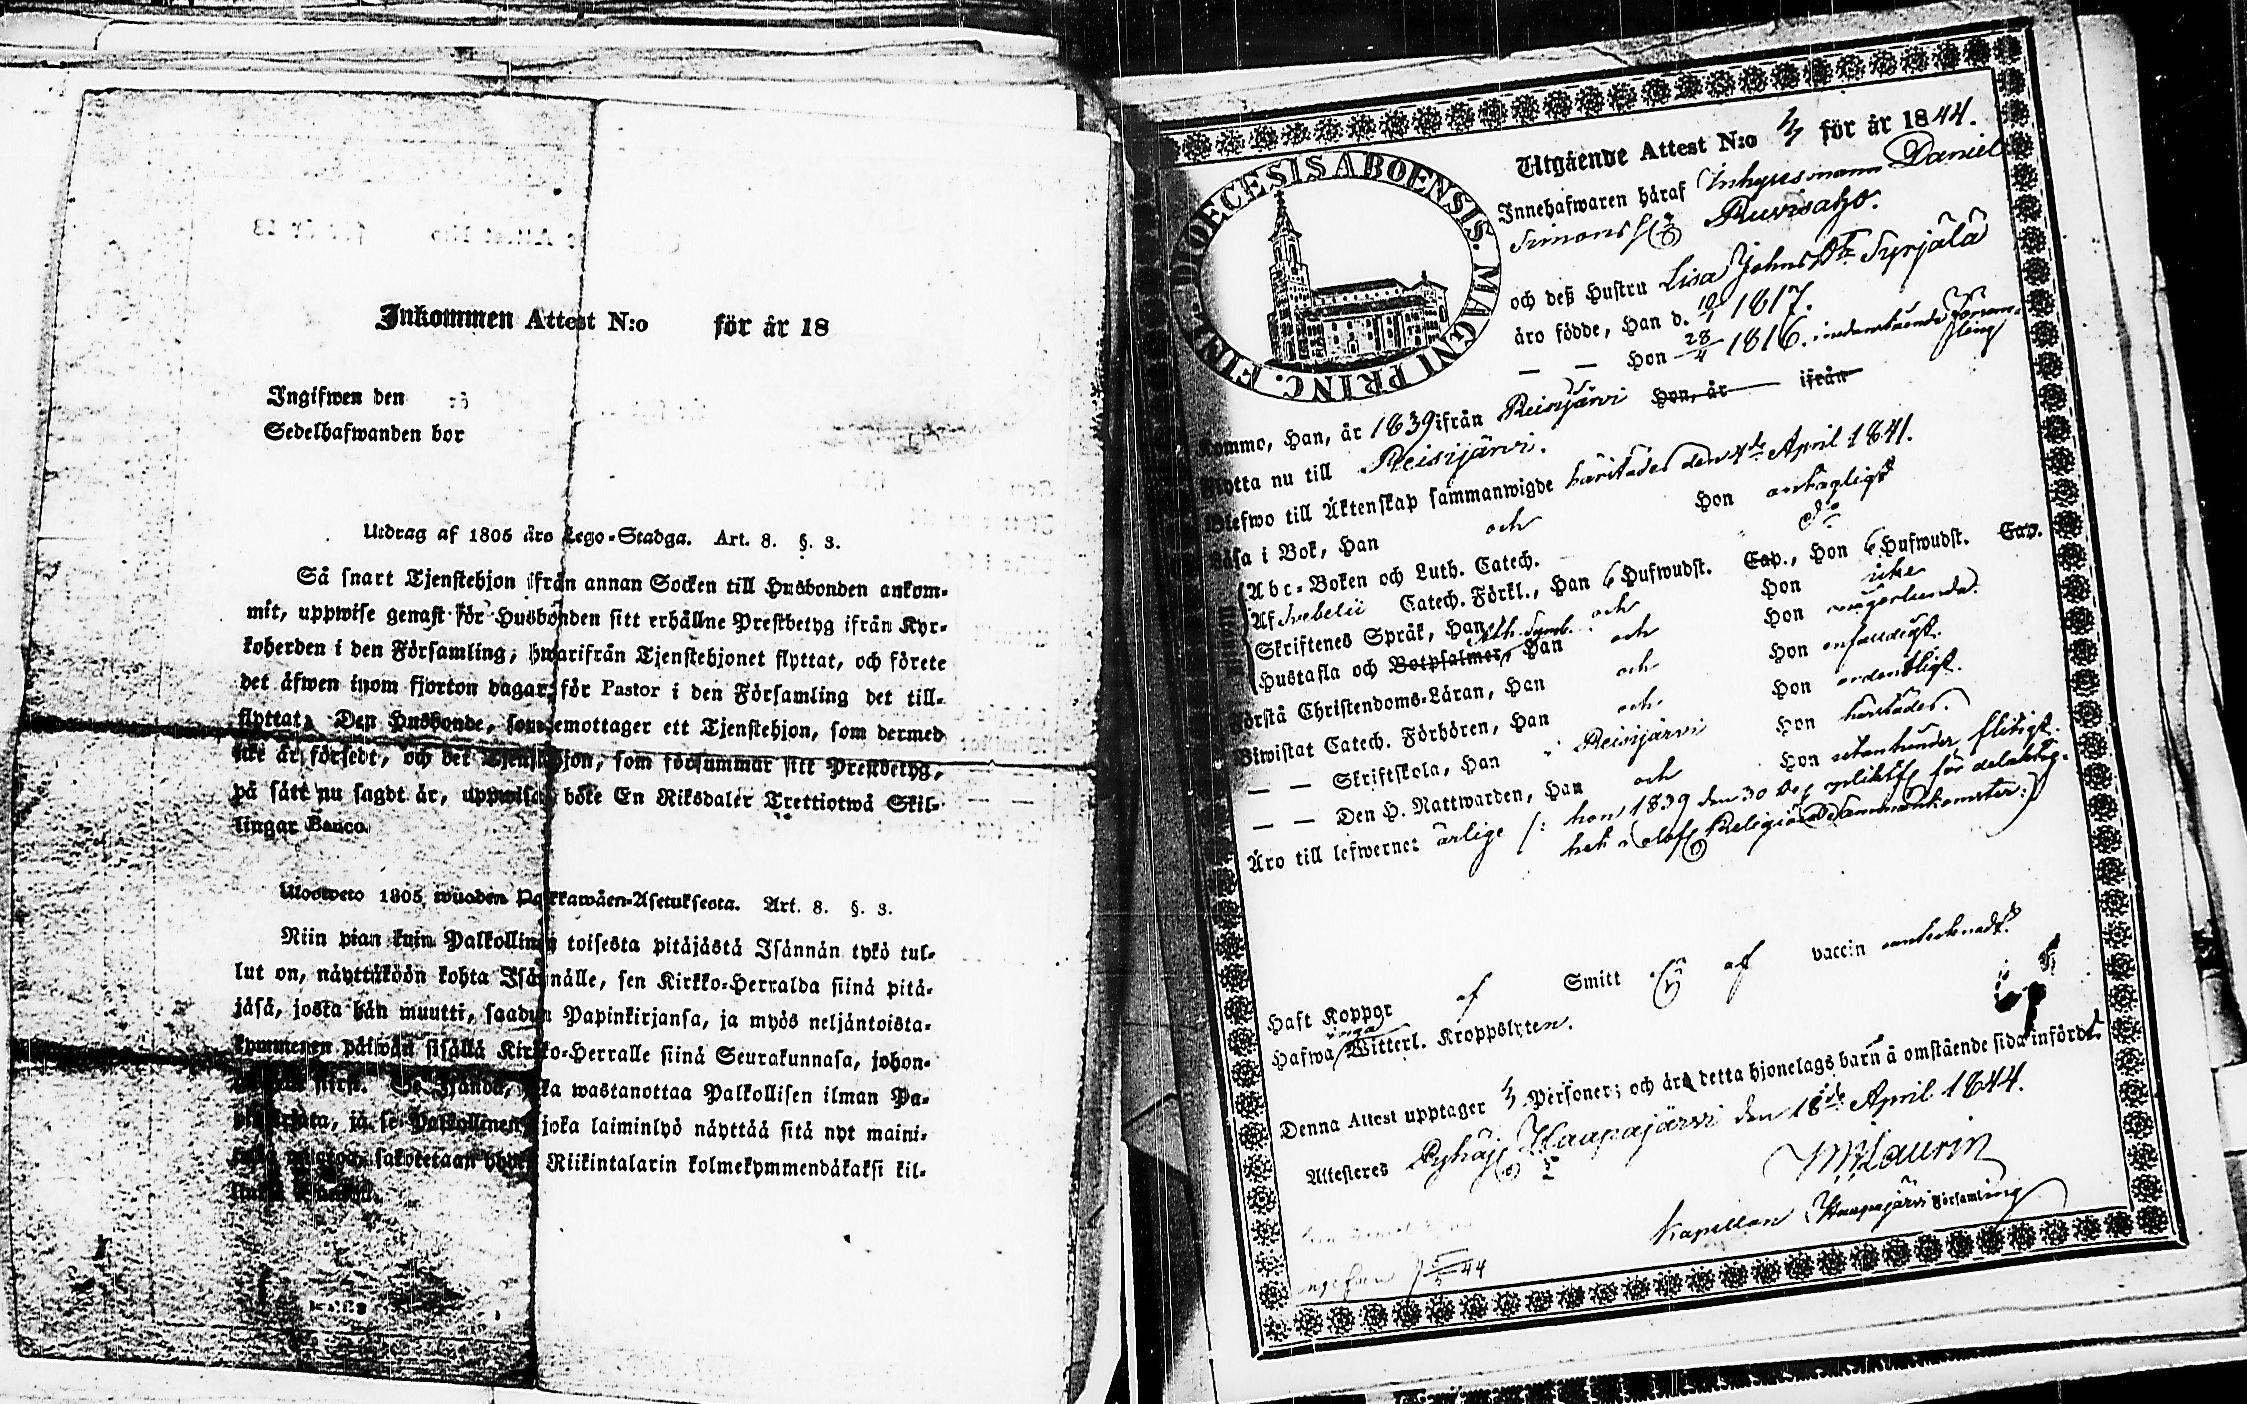 Inkommen Attest N:o för år 18
Ingifwen den
Sedelhafwanden bor
Utdrag af 1805 års Lego-Stadga. Art. 8. §. 3.
Så snart Tjenstehjon ifrån annan Socken till Husbonden ankom-
mit, uppwise genast för Husbonden sitt erhållne Prestbetyg ifrån Kyr-
koherden i den Församling, hwarifrån Tjenstehjonet flyttat, och förete
det äfwen inom fjorton dagar för Pastor i den Församling det till-
flyttat. Den Husbonde, som emottager ett Tjenstehjon, som dermed
icke är försedt, och det Tjenstehjon, som försummar sitt Prestbetyg,
på sätt nu sagdt är, uppwisa, böte En Riksdaler Trettiotwå Skil-
lingar Banco.
Ulosweto 1805 wuoden Palkkawäen-Asetuksesta. Art. 8. §. 3.
Niin pian kuin Palkollinen toisesta pitäjästä Isännän tykö tul-
lut on, näyttäköön kohta Isännälle, sen Kirkko-Herralda siinä pitä-
jäsä, josta hän muutti, saadun Papinkirjansa, ja myös neljäntoista-
kymmenen päiwän sisällä Kirkko-Herralle siinä Seurakunnasa, johon-
siirsi. Se Isändä, joka wastanottaa Palkollisen ilman Pa-
ja se Palkollinen, joka laiminlyö näyttää sitä nyt maini-
sakotetaan yhden Riikintalarin kolmekymmendäkaksi kil-
DIOECESIS ABOENSIS. MAGNI PRINC. FINL.
Utgående Attest N:o för år 1844.
Innehafwaren häraf Inhysesmann Daniel
Simons Ruuvisaho.
och deß Hustru Lisa Johns Dr Syrjälä
äro födde, Han d. 10/1 1817.
— — Hon 28/4 1816. inedanstående Församling
Kommo, Han, år 1839 ifrån Reisijärvi Hon, år ifrån
Flytta nu till Reisijärvi.
Blefwo till Äktenskap sammanwigde härstädes den 4de April 1841.
Läsa i Bok, Han och Hon antagligt
Abc-Boken och Luth. Catech. do
Af Svebelii Catech. Förkl., Han 6 Hufwudst. Cap., Hon 6 Hufwudst. Cap.
Skriftenes Språk, Han och Hon icke
Hustafla och Botpsalmer, Ath. Symb. Han och Hon någorlunda.
Förstå Christendoms-Läran, Han och Hon enfaldigt.
Biwistat Catech. Förhören, Han och Hon ordentligt.
— — Skriftskola, Han i Reisijärvi Hon härstädes.
— — Den H. Nattwarden, Han och Hon flitigt.
Äro till lefwernet ärlige /: hon 1839 den 30 Dec. pliktf. för delaktig-
het i olofl. Religions Sammankomster:/
Haft Koppor af Smitt af vaccin antecknadt.
Hafwa inga Witterl. Kroppslyten.
Denna Attest upptager Personer; och äro detta hjonelags barn å omstående sida införde.
Attesteres Pyhäj. Haapajärvi den 18de April 1844.
Laurin
Kapellan i Haapajärvi Församling
5/5 44